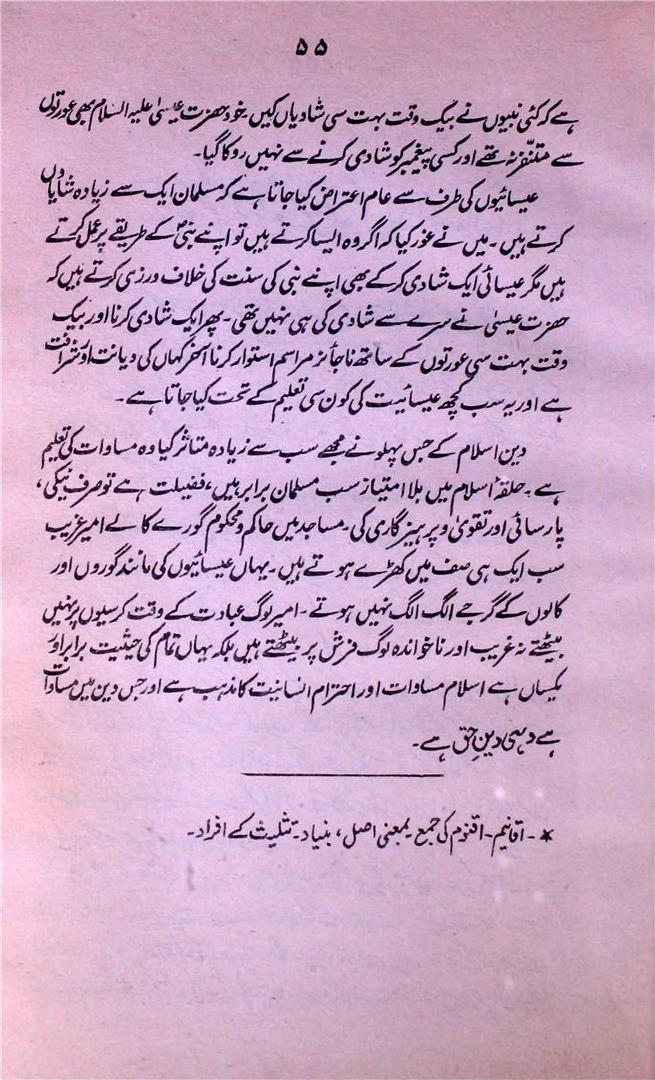 ۵۵
ہے کہ کئی نبیوں نے بیک وقت بہت سی شادیاں کیں۔ خود حضرت عیسیٰ علیہ السلام بھی عورتوں
سے متنفر نہ تھے اور کسی پیغمبر کو شادی کرنے سے نہیں روکا گیا۔
عیسائیوں کی طرف سے عام اعتراض کیا جاتا ہے کہ مسلمان ایک سے زیادہ شادیاں
کرتے ہیں۔ میں نے غور کیا کہ اگر وہ ایسا کرتے ہیں تو اپنے نبیؐ کے طریقے پر عمل کرتے
ہیں مگر عیسائی ایک شادی کر کے بھی اپنے نبی کی سنت کی خلاف ورزی کرتے ہیں کہ
حضرت عیسیٰ نے سرے سے شادی کی ہی نہیں تھی۔ پھر ایک شادی کرنا اور بیک
وقت بہت سی عورتوں کے ساتھ ناجائز مراسم استوار کرنا آخر کہاں کی دیانت اور شرافت
ہے اور یہ سب کچھ عیسائیت کی کون سی تعلیم کے تحت کیا جاتا ہے۔
دین اسلام کے جس پہلو نے مجھے سب سے زیادہ متاثر کیا وہ مساوات کی تعلیم
ہے۔ حلقۂ اسلام میں بلا امتیاز سب مسلمان برابر ہیں، فضیلت ہے تو صرف نیکی،
پارسائی اور تقویٰ و پرہیزگاری کی۔ مساجد میں حاکم و محکوم گورے کالے امیر غریب
سب ایک ہی صف میں کھڑے ہوتے ہیں۔ یہاں عیسائیوں کی مانند گوروں اور
کالوں کے گرجے الگ الگ نہیں ہوتے۔ امیر لوگ عبادت کے وقت کرسیوں پر نہیں
بیٹھتے نہ غریب اور ناخواندہ لوگ فرش پر بیٹھتے ہیں بلکہ یہاں تمام کی حیثیت برابر اور
یکساں ہے اسلام مساوات اور احترام انسانیت کا مذہب ہے اور جس دین میں مساوات
ہے وہی دینِ حق ہے۔
* ۔ اقانیم۔ اقنوم کی جمع۔ بمعنی اصل، بنیاد۔ تثلیث کے افراد۔